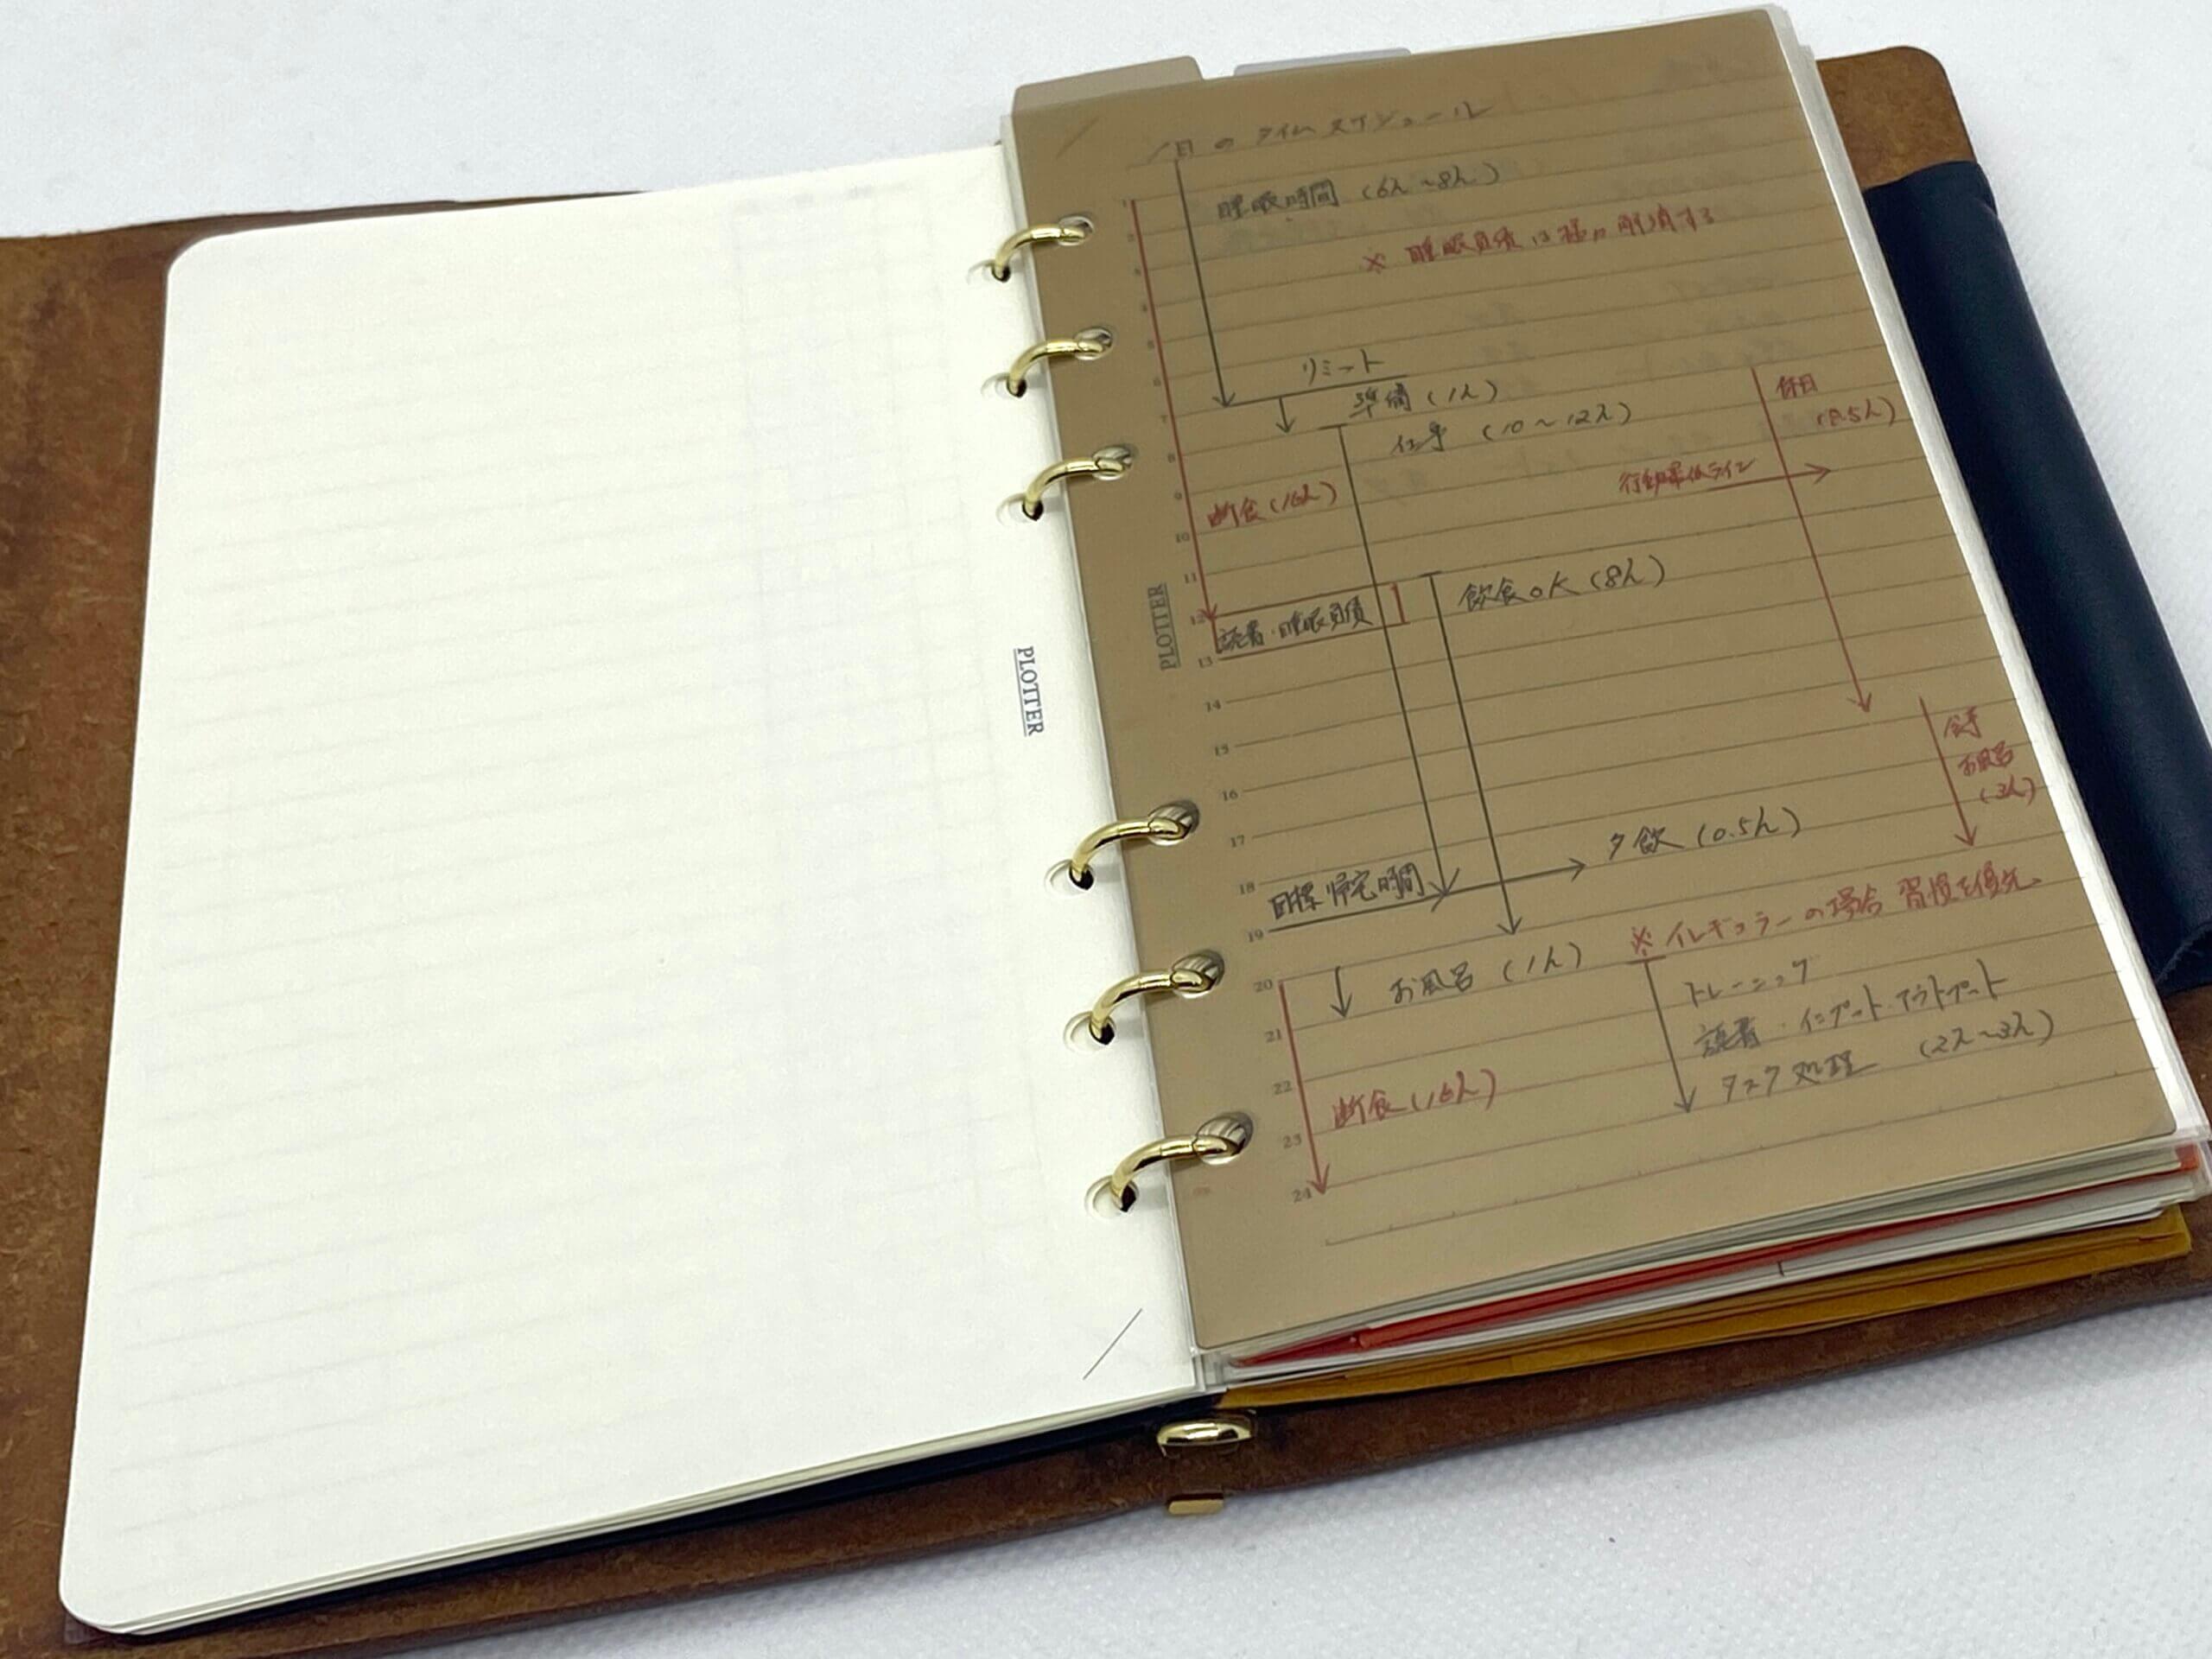 1日のタイムスケジュール
睡眠時間 (6h~8h)
※ 睡眠負債は 削減する
リミット
準備 (1h)
仕事 (10~12h)
休日
行動最低ライン
断食 (16h)
飲食OK (8h)
読書・睡眠負債
PLOTTER
PLOTTER
1
2
3
4
5
6
7
8
9
10
11
12
13
14
15
16
17
18
19
20
21
22
23
24
食事
お風呂
(3h)
夕飲 (0.5h)
目標 帰宅時間
※ イレギュラーの場合 習慣を優先
お風呂 (1h)
トレーニング
読書・インプット・アウトプット
タスク処理 (2h~3h)
断食 (16h)